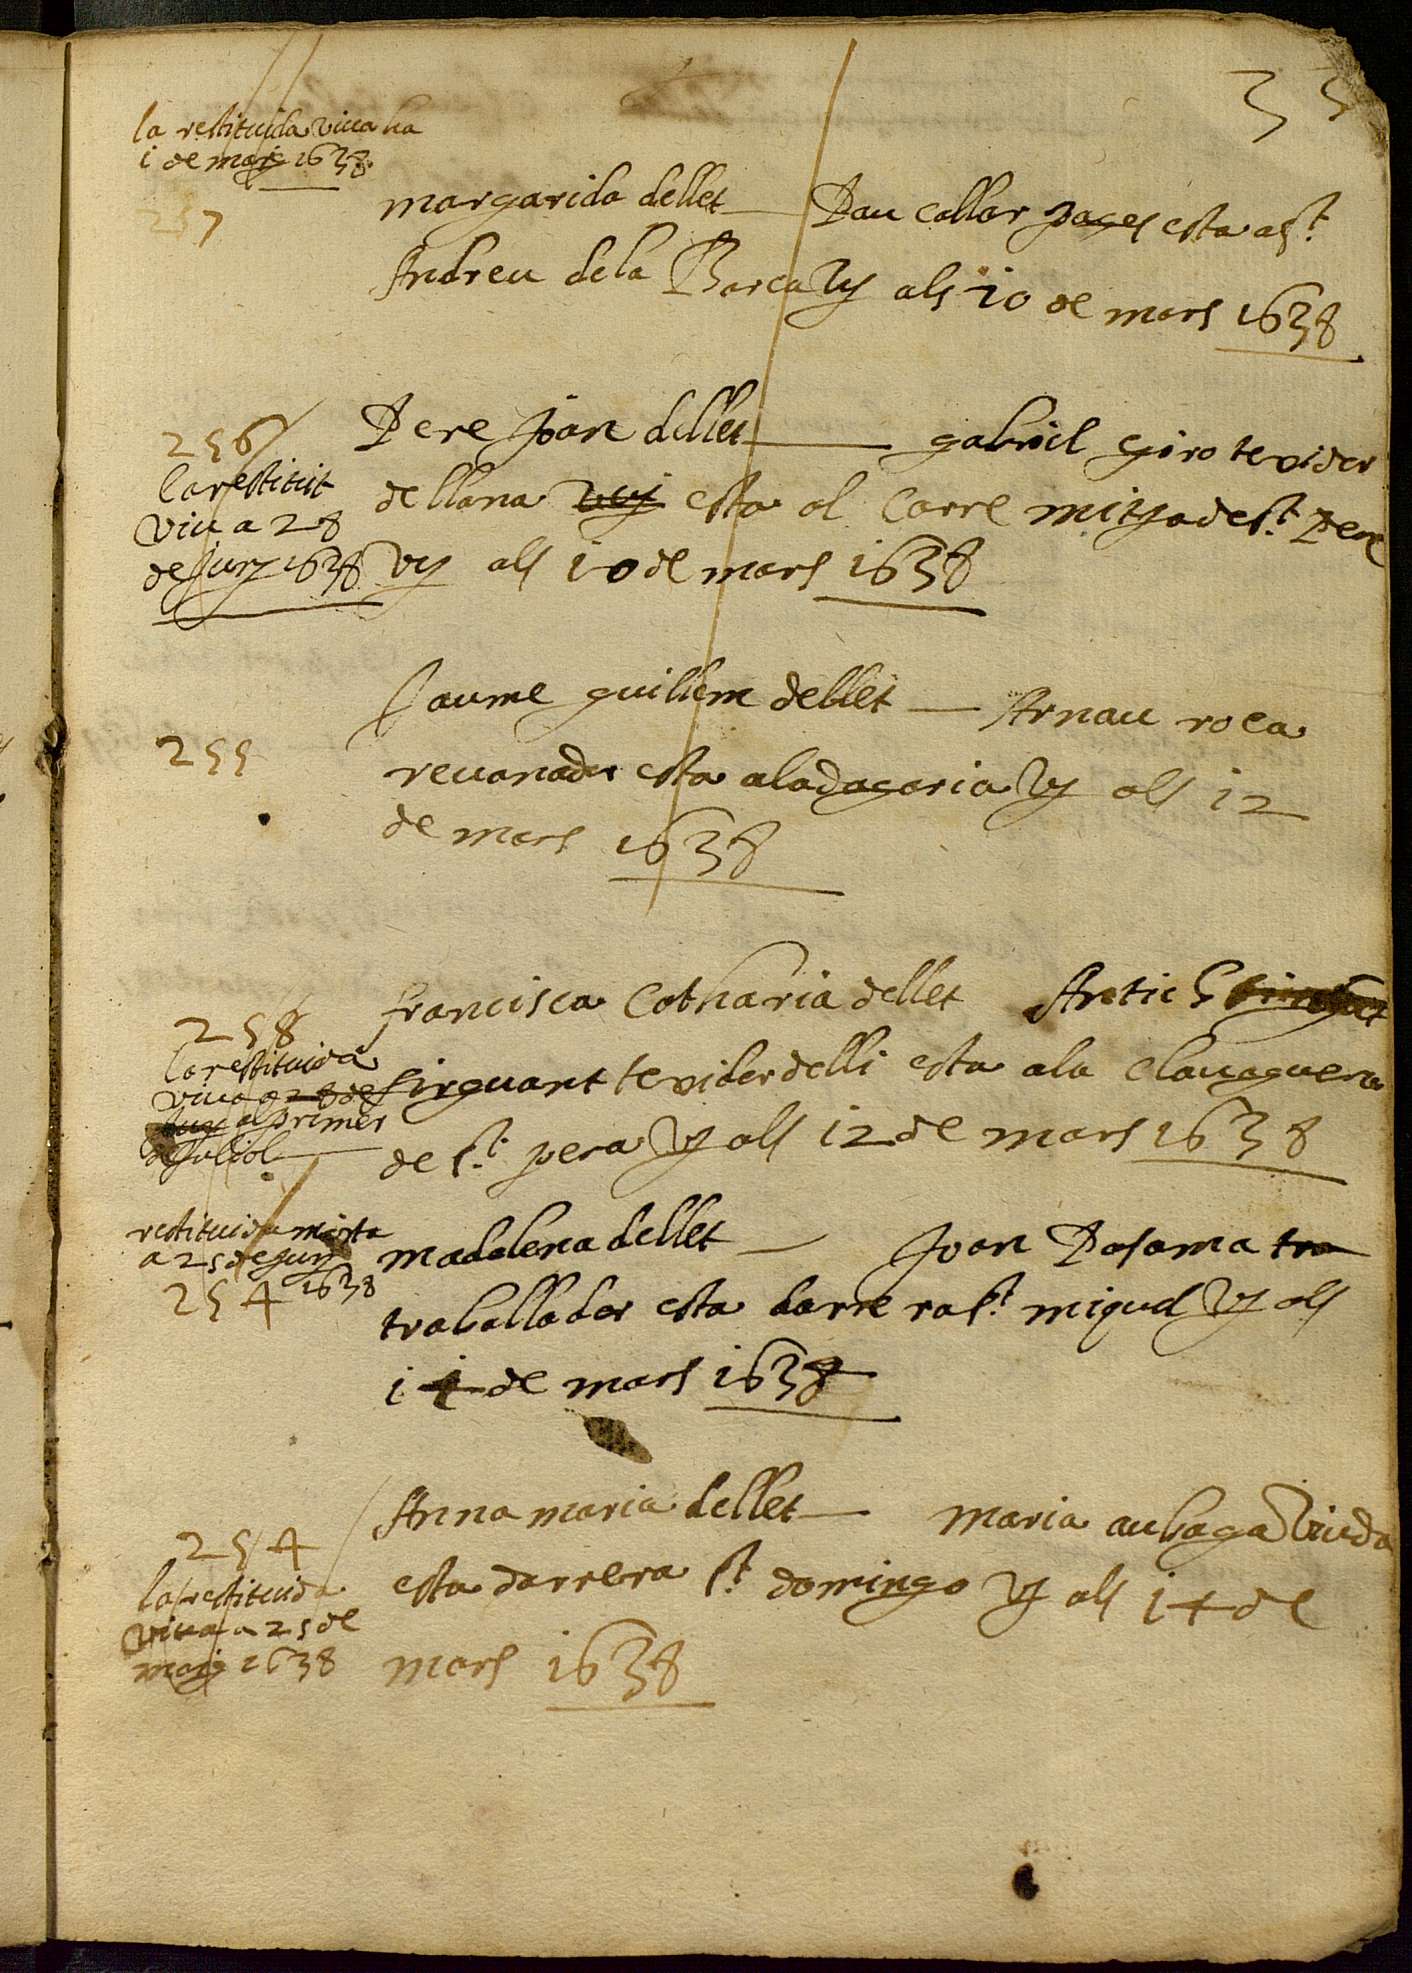 35
la restituida viva ha
1 de maig 1638
257
margarida dellet — Pau collar pages esta a st.
Andreu dela Barca vy als 10 de mars 1638
256
la restituit
viu a 28
de juny 1638
Pere Joan dellet — gabriel giro texidor
de llana vuy esta al carre mitja de st. Pere
vy als 10 de mars 1638
255
Jaume guillem dellet — Arnau roca
revanadr esta ala dagaria vy als 12
de mars 1638
258
la restituida
viva a 28 de
juny al primer
de juliol
francisca Catharia dellet Antic
sirguant texidor delli esta ala clavaguera
de st. pera vy als 12 de mars 1638
restituida morta
a 25 de juny
1638
254
madalena dellet — Joan Pasama tra
traballador esta darre ra st. miquel vy als
14 de mars 1638
254
la restituida
viva a 25 de
maig 1638
Anna maria dellet — maria aubaga viuda
esta darrera st. domingo vy als 14 de
mars 1638